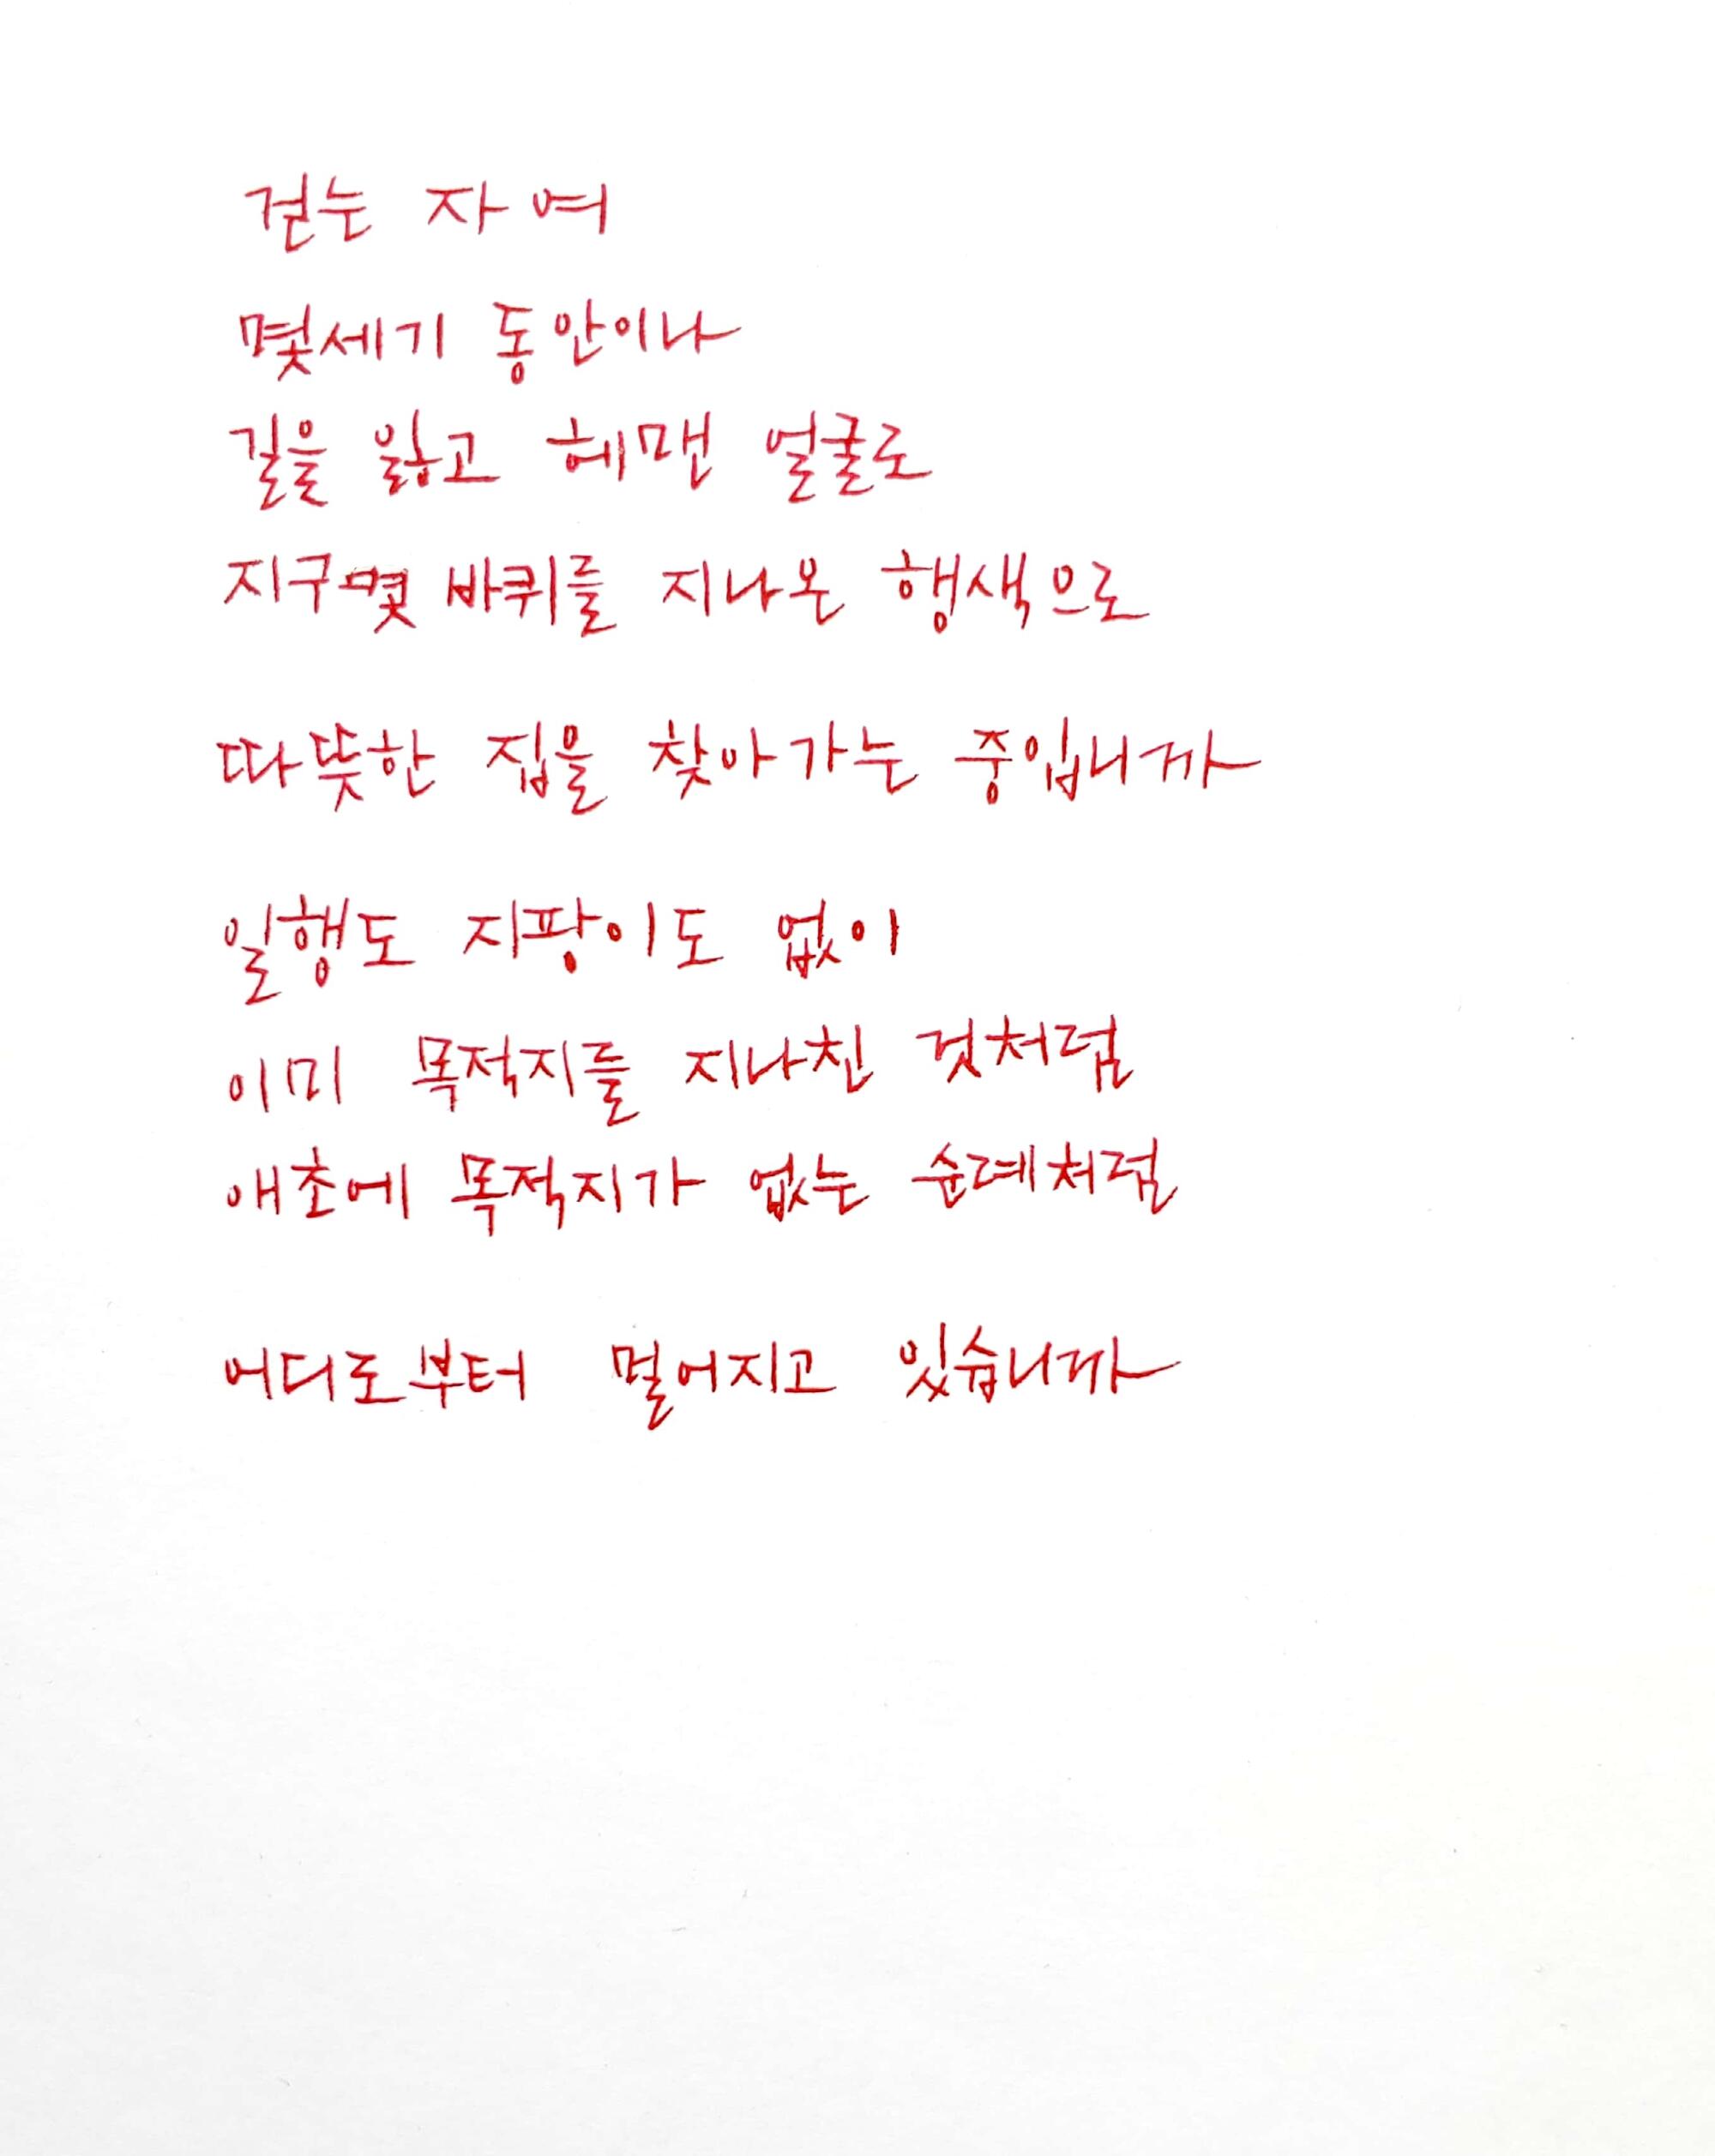 걷는 자여
몇세기 동안이나
길을 잃고 헤맨 얼굴로
지구몇 바퀴를 지나온 행색으로
따뜻한 집을 찾아가는 중입니까
일행도 지팡이도 없이
이미 목적지를 지나친 것처럼
애초에 목적지가 없는 순례처럼
어디로부터 멀어지고 있습니까